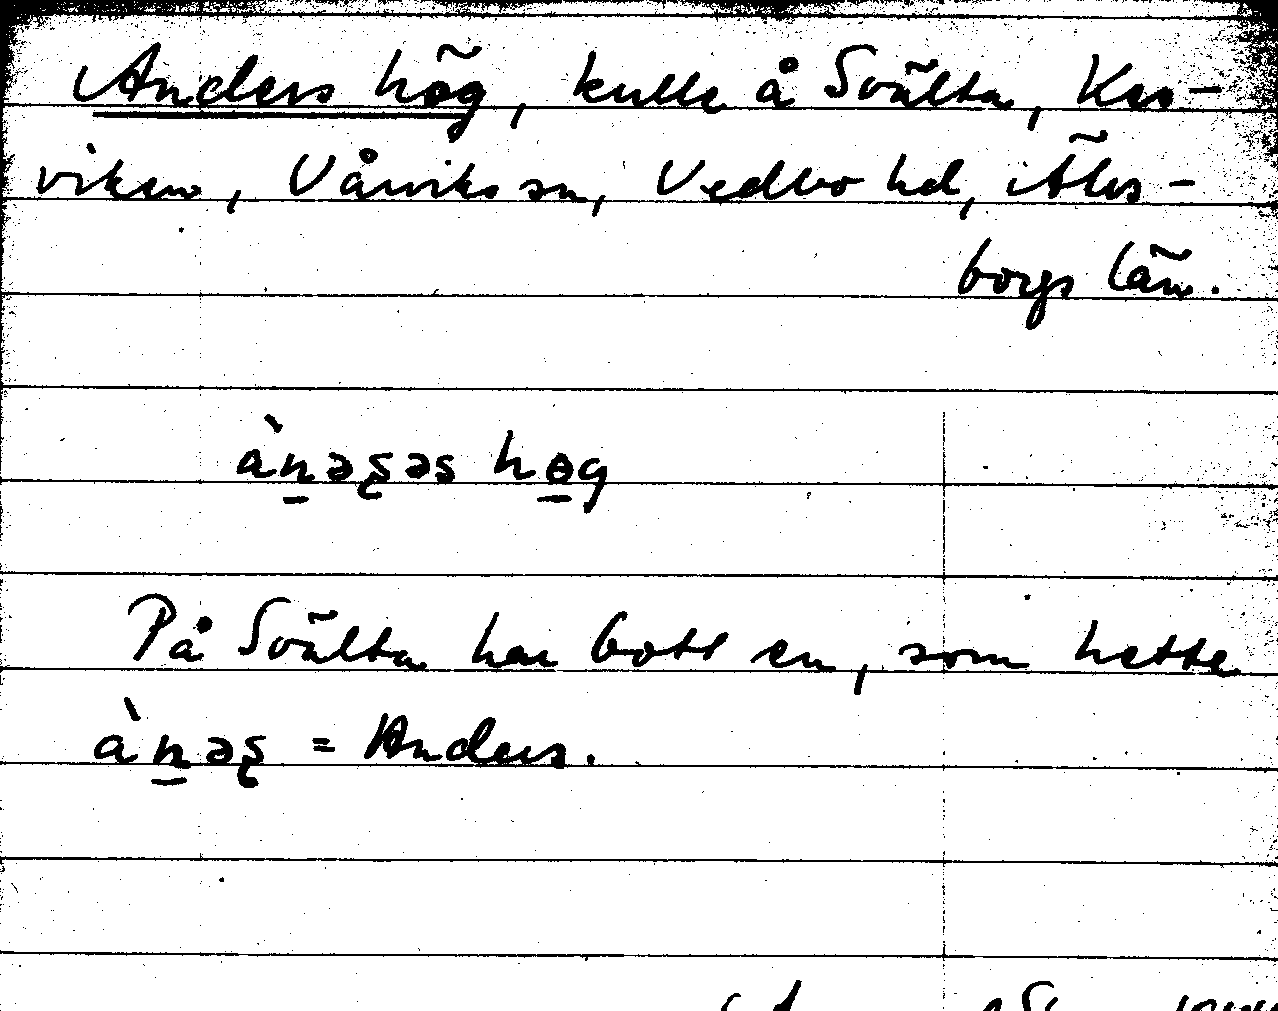 Anders hög, kulle å Svälta, Kas-
viken, Vårviks sn, Vedbo hd, Älvs-
borgs län.
àn̲əʂəs hɵ̲g
På Svälta har bott en, som hette
àn̲əʂ = Anders.